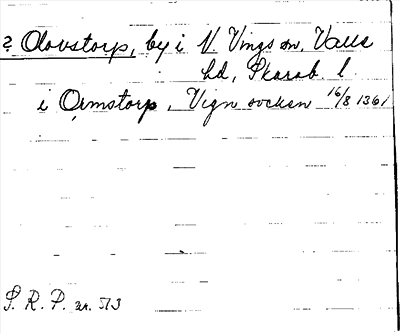 ? Olovstorp, by i N. Vings sn, Valle
hd, Skarab. l.
i Ormstorp, Vign socken 16/8 1361
S. R. P. nr. 513